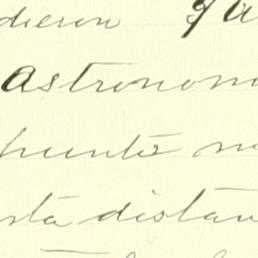 dieron ga
Astronom
punto no
sta distan